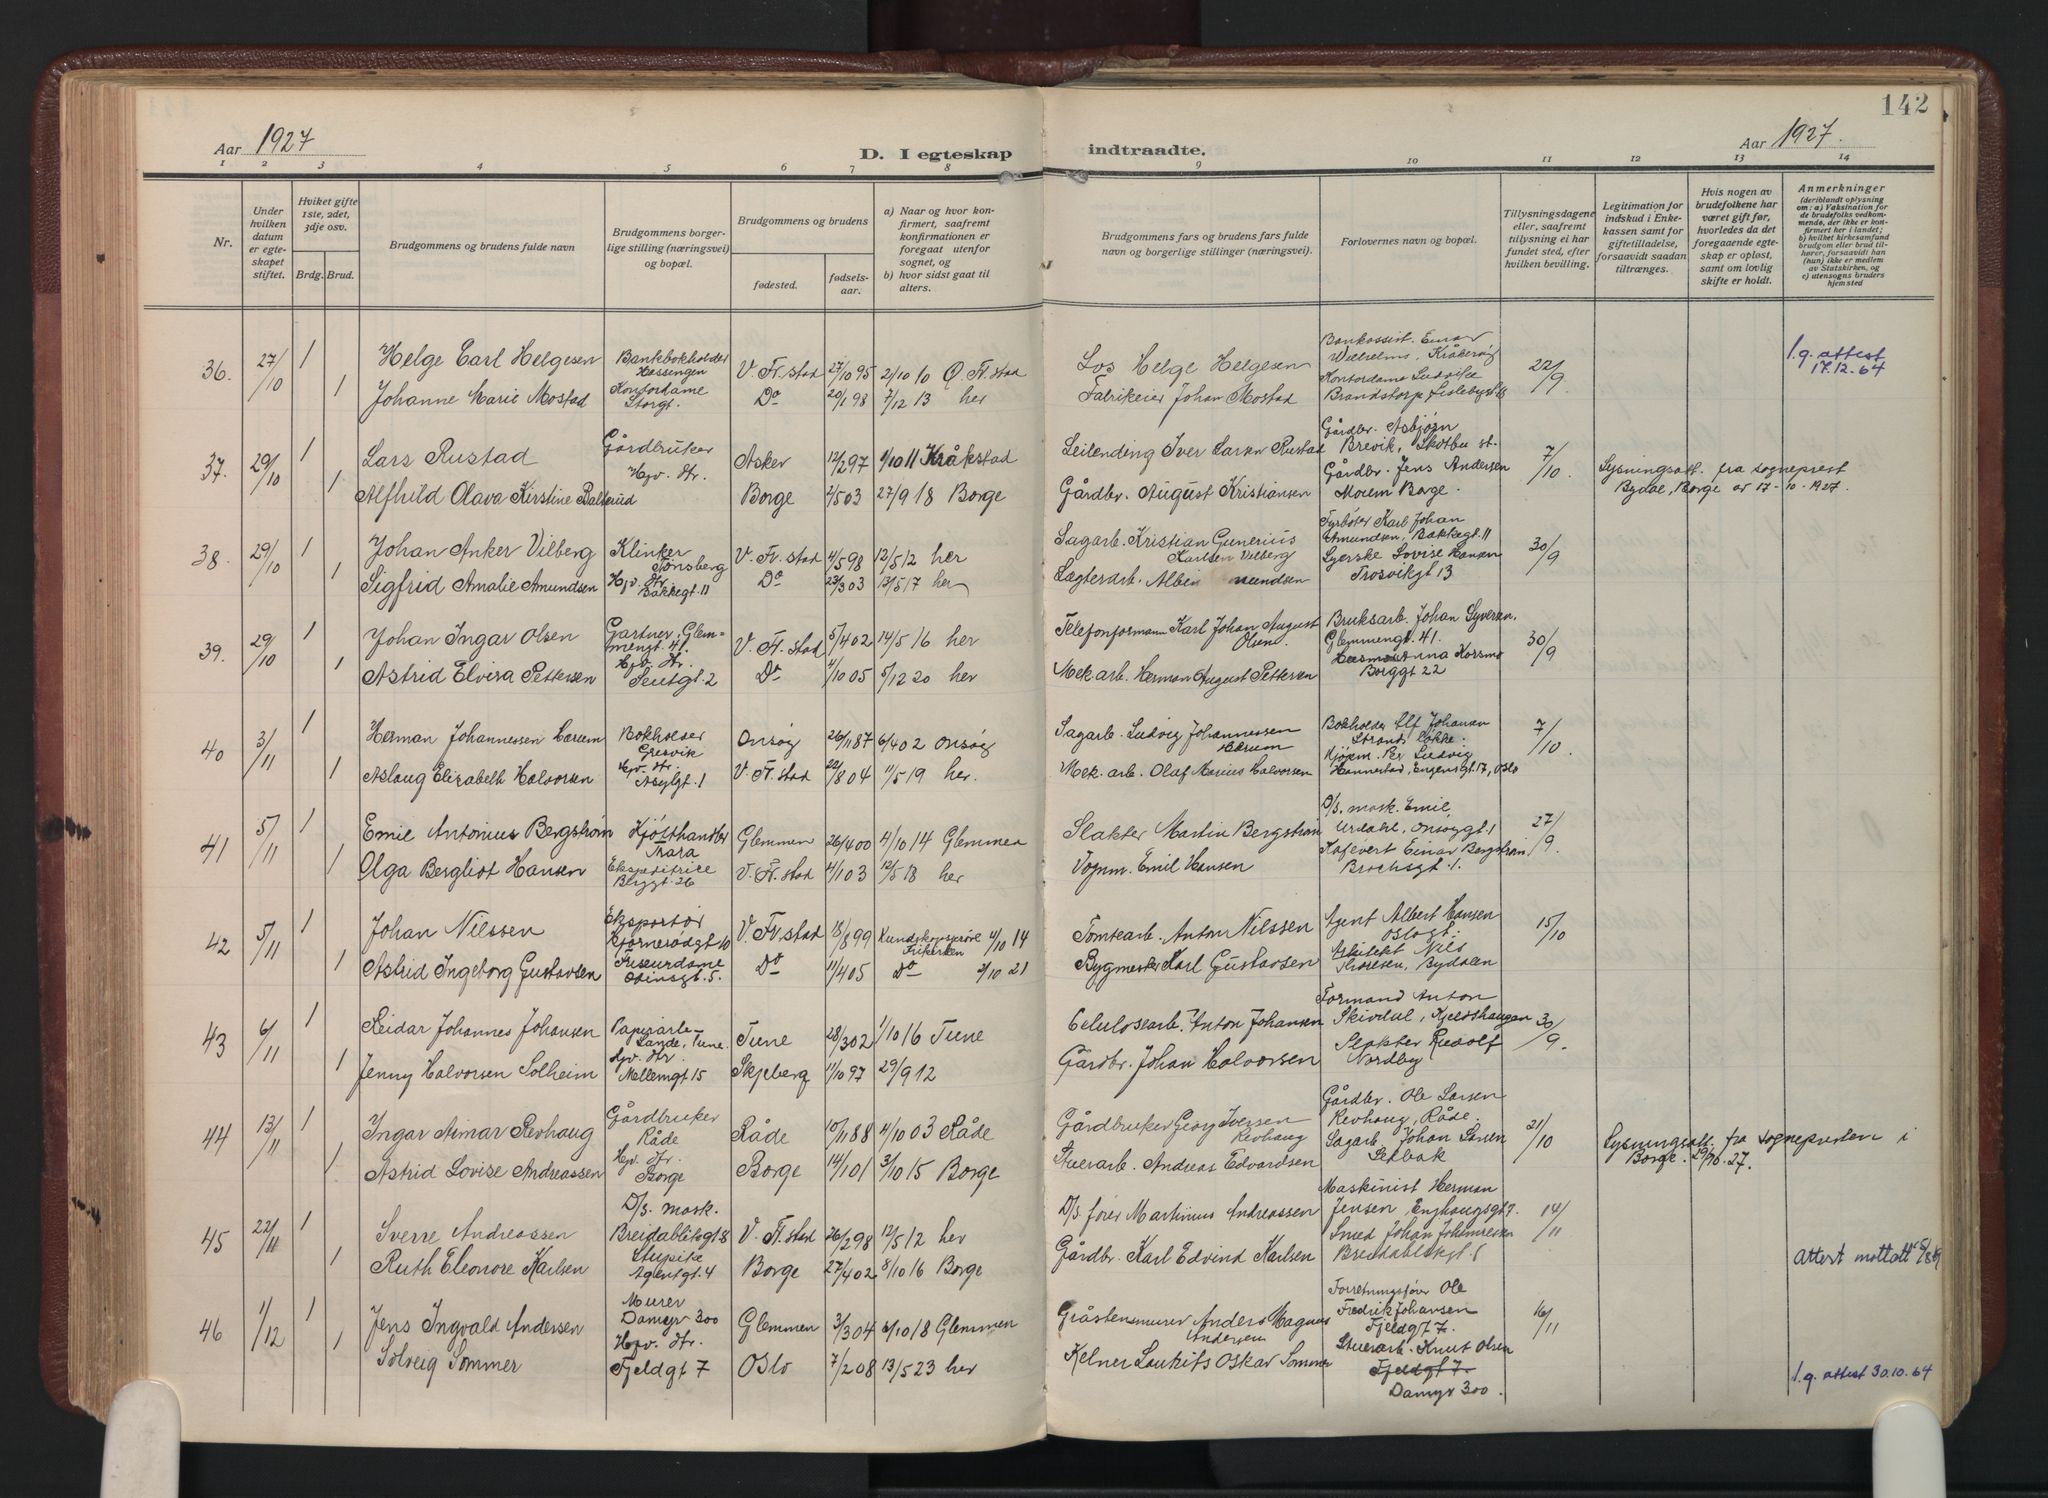 142
Aar 1927
D. I egteskap indtraadte.
Aar 1927.
1 2 3 4 5 6 7 8 9 10 11 12 13 14
Nr.
Under hvilken datum er egteskapet stiftet.
Hviket gifte 1ste, 2det, 3dje osv.
Brdg. Brud.
Brudgommens og brudens fulde navn
Brudgommens borgerlige stilling (næringsvei) og bopæl.
Brudgommens og brudens
fødested.
fødselsaar.
a) Naar og hvor konfirmert, saafremt konfirmationen er foregaat utenfor sognet, og
b) hvor sidst gaat til alters.
Brudgommens fars og brudens fars fulde navn og borgerlige stillinger (næringsvei).
Forlovernes navn og bopæl.
Tillysningsdagene eller, saafremt tilysning ei har fundet sted, efter hvilken bevilling.
Legitimation for indskud i Enkekassen samt for giftetilladelse, forsaavidt saadan tiltrænges.
Hvis nogen av brudefolkene har været gift før, hvorledes da det foregaaende egteskap er opløst, samt om lovlig skifte er holdt.
Anmerkninger (deriblandt oplysning om: a) Vaksination for de brudefolks vedkommende, der ikke er konfirmert her i landet; b) hvilket kirkesamfund brudgom eller brud tilhører, forsaavidt han (hun) ikke er medlem av Statskirken, og c) utensogns bruders hjemsted
36. 27/10 1 Helge Carl Helgesen Bankbokholder Hassingen V. Fr.stad 27/10 95 2/10 10 Ø. Fr.stad Los Helge Helgesen Bankassist. Einar Wilhelms, Kråkerøy 22/9 l.g. attest 17.12.64
1 Johanne Marie Mostad Kontordame Storgt. Do 20/1 98 7/12 13 her Fabrikeier Johan Mostad Kontordame Ludvika Brandstorp
37. 29/10 1 Lars Rustad Gårdbruker Asker 12/2 97 1/10 11 Kråkstad Leilending Iver Larsen Rustad Gårdbr. Asbjørn Brevik, Skotbu st. 7/10 Lysningsatt. fra sogneprest Bydal, Borge av 17-10-1927
1 Alfhild Olava Kirstine Balterud Hjv. dtr. Borge 2/5 03 27/9 18 Borge Gårdbr. August Kristiansen Gårdbr. Jens Andersen Moum Borge.
38. 29/10 1 Johan Anker Vilberg Klinker Tønsberg V. Fr.stad 4/5 98 12/5 12 her Sagarb. Kristian Gunerius Karlsen Vilberg Fyrbøter Karl Johan Amundsen, Bakkegt. 11 30/9
1 Sigfrid Amalie Amundsen Hjv. dtr. Bakkegt. 11 Do 23/3 03 13/5 17 her Lægterarb. Albin Syerske Lovise Hansen Trosvikgt 13
39. 29/10 1 Johan Ingar Olsen Gartner, Glemmengt. 41. V. Fr.stad 5/4 02 14/5 16 her Telefonformann Karl Johan August Olsen Bruksarb. Johan Syversen, Glemmengt. 41. 30/9
1 Astrid Elvira Pettersen Hjv. dtr. Seutgt. 2 Do 4/10 05 5/12 20 her Mek arb. Herman August Pettersen Anna Korsmo Borggt 22
40 3/11 1 Herman Johannessen Bærum Bokholder Gresvik Onsøy 26/11 87 6/4 02 Onsøy Sagarb. Ludvig Johannessen Bærum Bokholder Elf Johansen Strands Løkke. 7/10.
1 Aslaug Elizabeth Halvorsen Hjv. dtr. Asylgt. 1 V. Fr.stad 22/8 04 11/5 19 her. Mek. arb. Olaf Marius Halvorsen Kjøpm. Per Ludvig Hannestad, Engensgt. 17, Oslo
41 5/11 1 Emil Antonius Bergstrøm Kjøtthandler Trara Glemmen 26/4 00 4/10 14 Glemmen Slakter Martin Bergstrøm D/s. mask. Emil Urdahl, Onsøygt. 1 27/9.
1 Olga Bergliot Hansen Ekspeditrice Bryggt. 26 V. Fr.stad 4/1 03 12/5 18 her Vognm. Emil Hansen Einar Bergstrøm Brochsgt. 1.
42 5/11 1 Johan Nilssen Eksportør Bjørnerødgt 10 V. Fr.stad 18/8 99 Kundskapsprøve Frikirken 4/10 14 Tomtearb. Anton Nilssen Agent Albert Hansen Oslogt. 15/10
1 Astrid Ingeborg Gustavsen Friseurdame Odinsgt. 5. Do 11/4 05 Do 2/10 21 Bygmester Karl Gustavsen Arkitekt Nils Thoresen, Bydalen
43 6/11 1 Reidar Johannes Johansen Papirarb. Sande, Tune. Tune 28/3 02 1/10 16 Tune Celulosearb. Anton Johansen Formand Anton Skivdal, Kjeldshaugen 30/9.
1 Jenny Halvorsen Solheim Hjv. dtr. Mellemgt 15 Skjeberg 11/10 97 29/9 12 Gårdbr. Johan Halvorsen Slakter Rudolf Nordby
44 13/11 1 Ingar Aimar Revhaug Gårdbruker Råde Råde 10/11 88 4/10 03 Råde Gårdbruker Georg Iversen Revhaug Gårdbr. Ole Larsen Revhaug, Råde. 21/10 Lysningsatt. fra sognepresten i Borge. 29/10. 27.
1 Astrid Lovise Andreassen Hjv. dtr. Borge Borge 14/1 01 3/10 15 Borge Stuerarb. Andreas Edvardsen Sagarb. Johan Larsen Selbak
45 22/11 1 Sverre Andreassen D/s. mask. Breidablikgt 8 V. Fr.stad 26/2 98 12/5 12 her D/s. fører Martinius Andreassen Maskinist Herman Jensen, Enghaugsgt 7. 14/11
1 Ruth Eleonore Karlsen Stupike Agentgt. 4 Borge 27/4 02 8/10 16 Borge Gårdbr. Karl Edvind Karlsen Smed Johan Johannessen Breidablikgt. 8 Attest mottatt
46 1/12 1 Jens Ingvald Andersen Murer Damyr 300 Glemmen 3/3 04 6/10 18 Glemmen Gråstensmurer Anders Magnus Andersen Forretningsfører Ole Fredrik Johansen Fjeldgt 7. 16/11
1 Solveig Sommer Hjv. dtr. Fjeldgt 7 Oslo 7/2 08 13/5 23 her Kelner Lauritz Oskar Sommer Stuerarb. Knut Olsen Fjeldgt 7 Damyr 300. l.g. attest 30.10.64